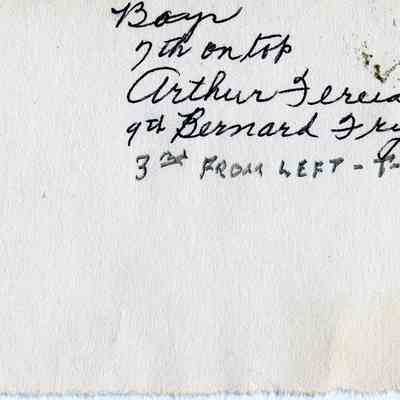 Boys
7th on top
Arthur Fereia
9th Bernard Fry
3rd FROM LEFT -